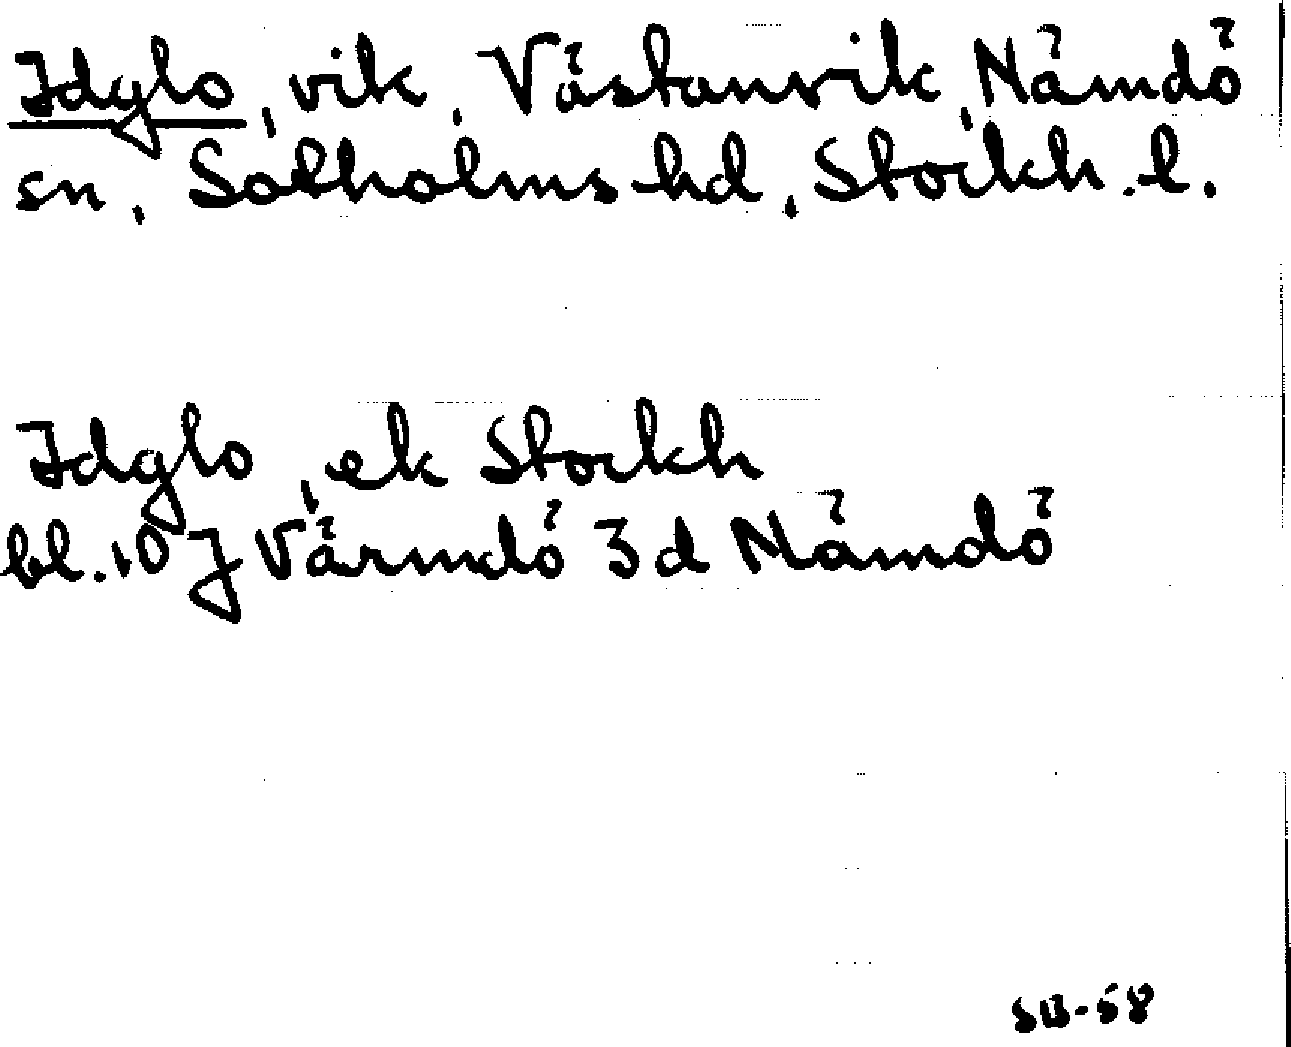 Idglo, vik, Västanvik, Nämdö
sn, Sotholms hd, Stockh. l.
Idglo, ek Stockh
bl. 10 J Värmdö 3d Nämdö
SB-58